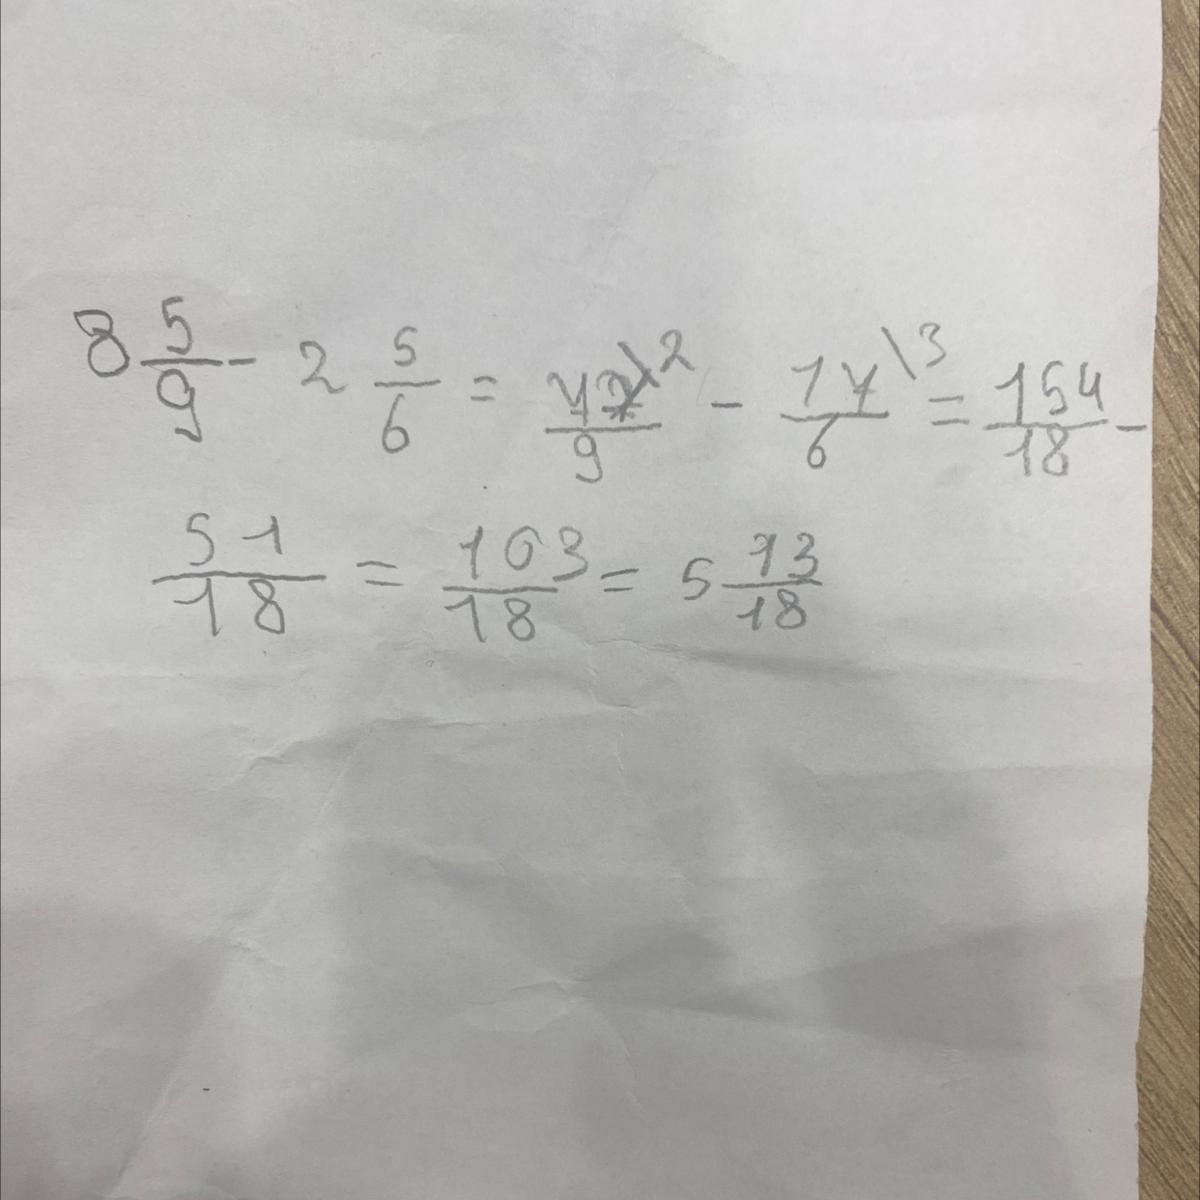 8 5/9 - 2 5/6 = 77\2/9 - 17\3/6 = 154/18 -
51/18 = 103/18 = 5 13/18